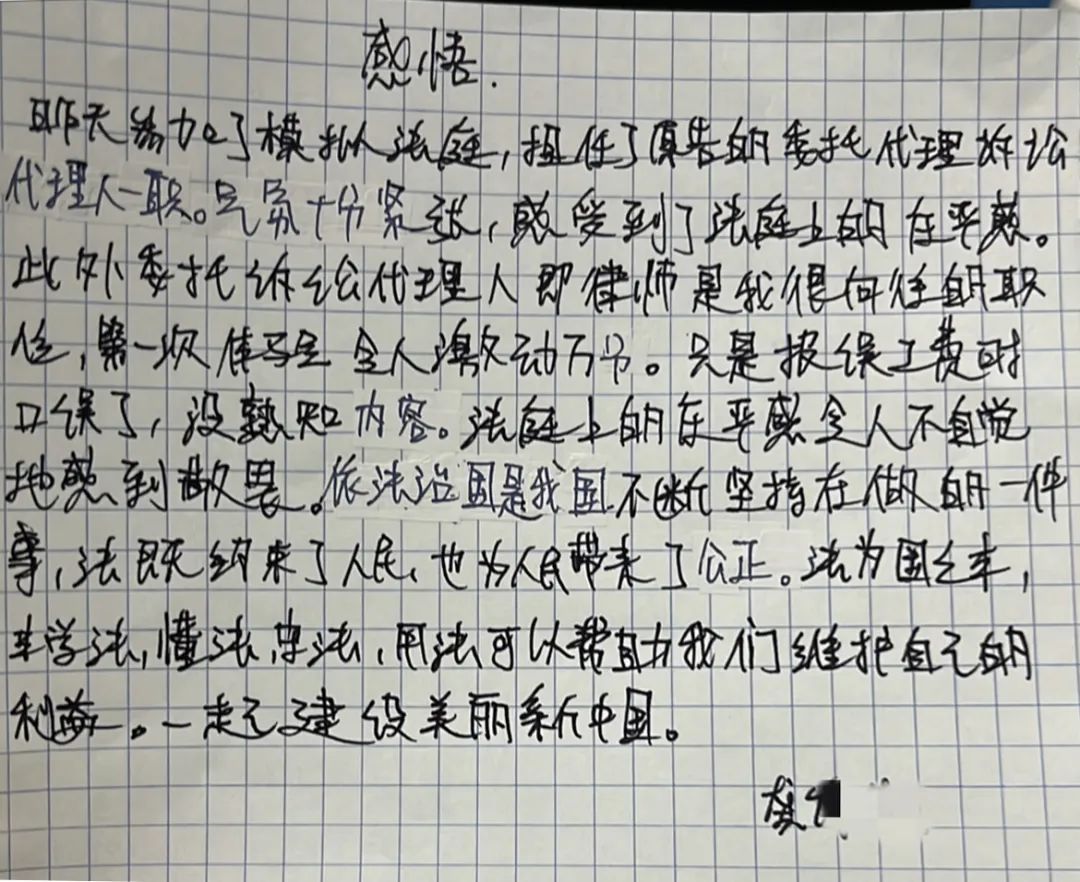 感悟.
聊天参加了模拟法庭，担任了原告的委托代理诉讼
代理人一职。只觉十分紧张，感受到了法庭上的庄严感。
此外委托诉讼代理人即律师是我很向往的职
位，第一次体验 令人激动万分。只是报误工费时
口误了，没熟知内容。法庭上的庄严感令人不自觉
地感到敬畏。依法治国是我国不断坚持在做的一件
事，法既约束了人民，也为人民带来了公正。法为国之本，
学法，懂法，守法，用法可以帮助我们维护自己的
利益。一起建设美丽新中国。